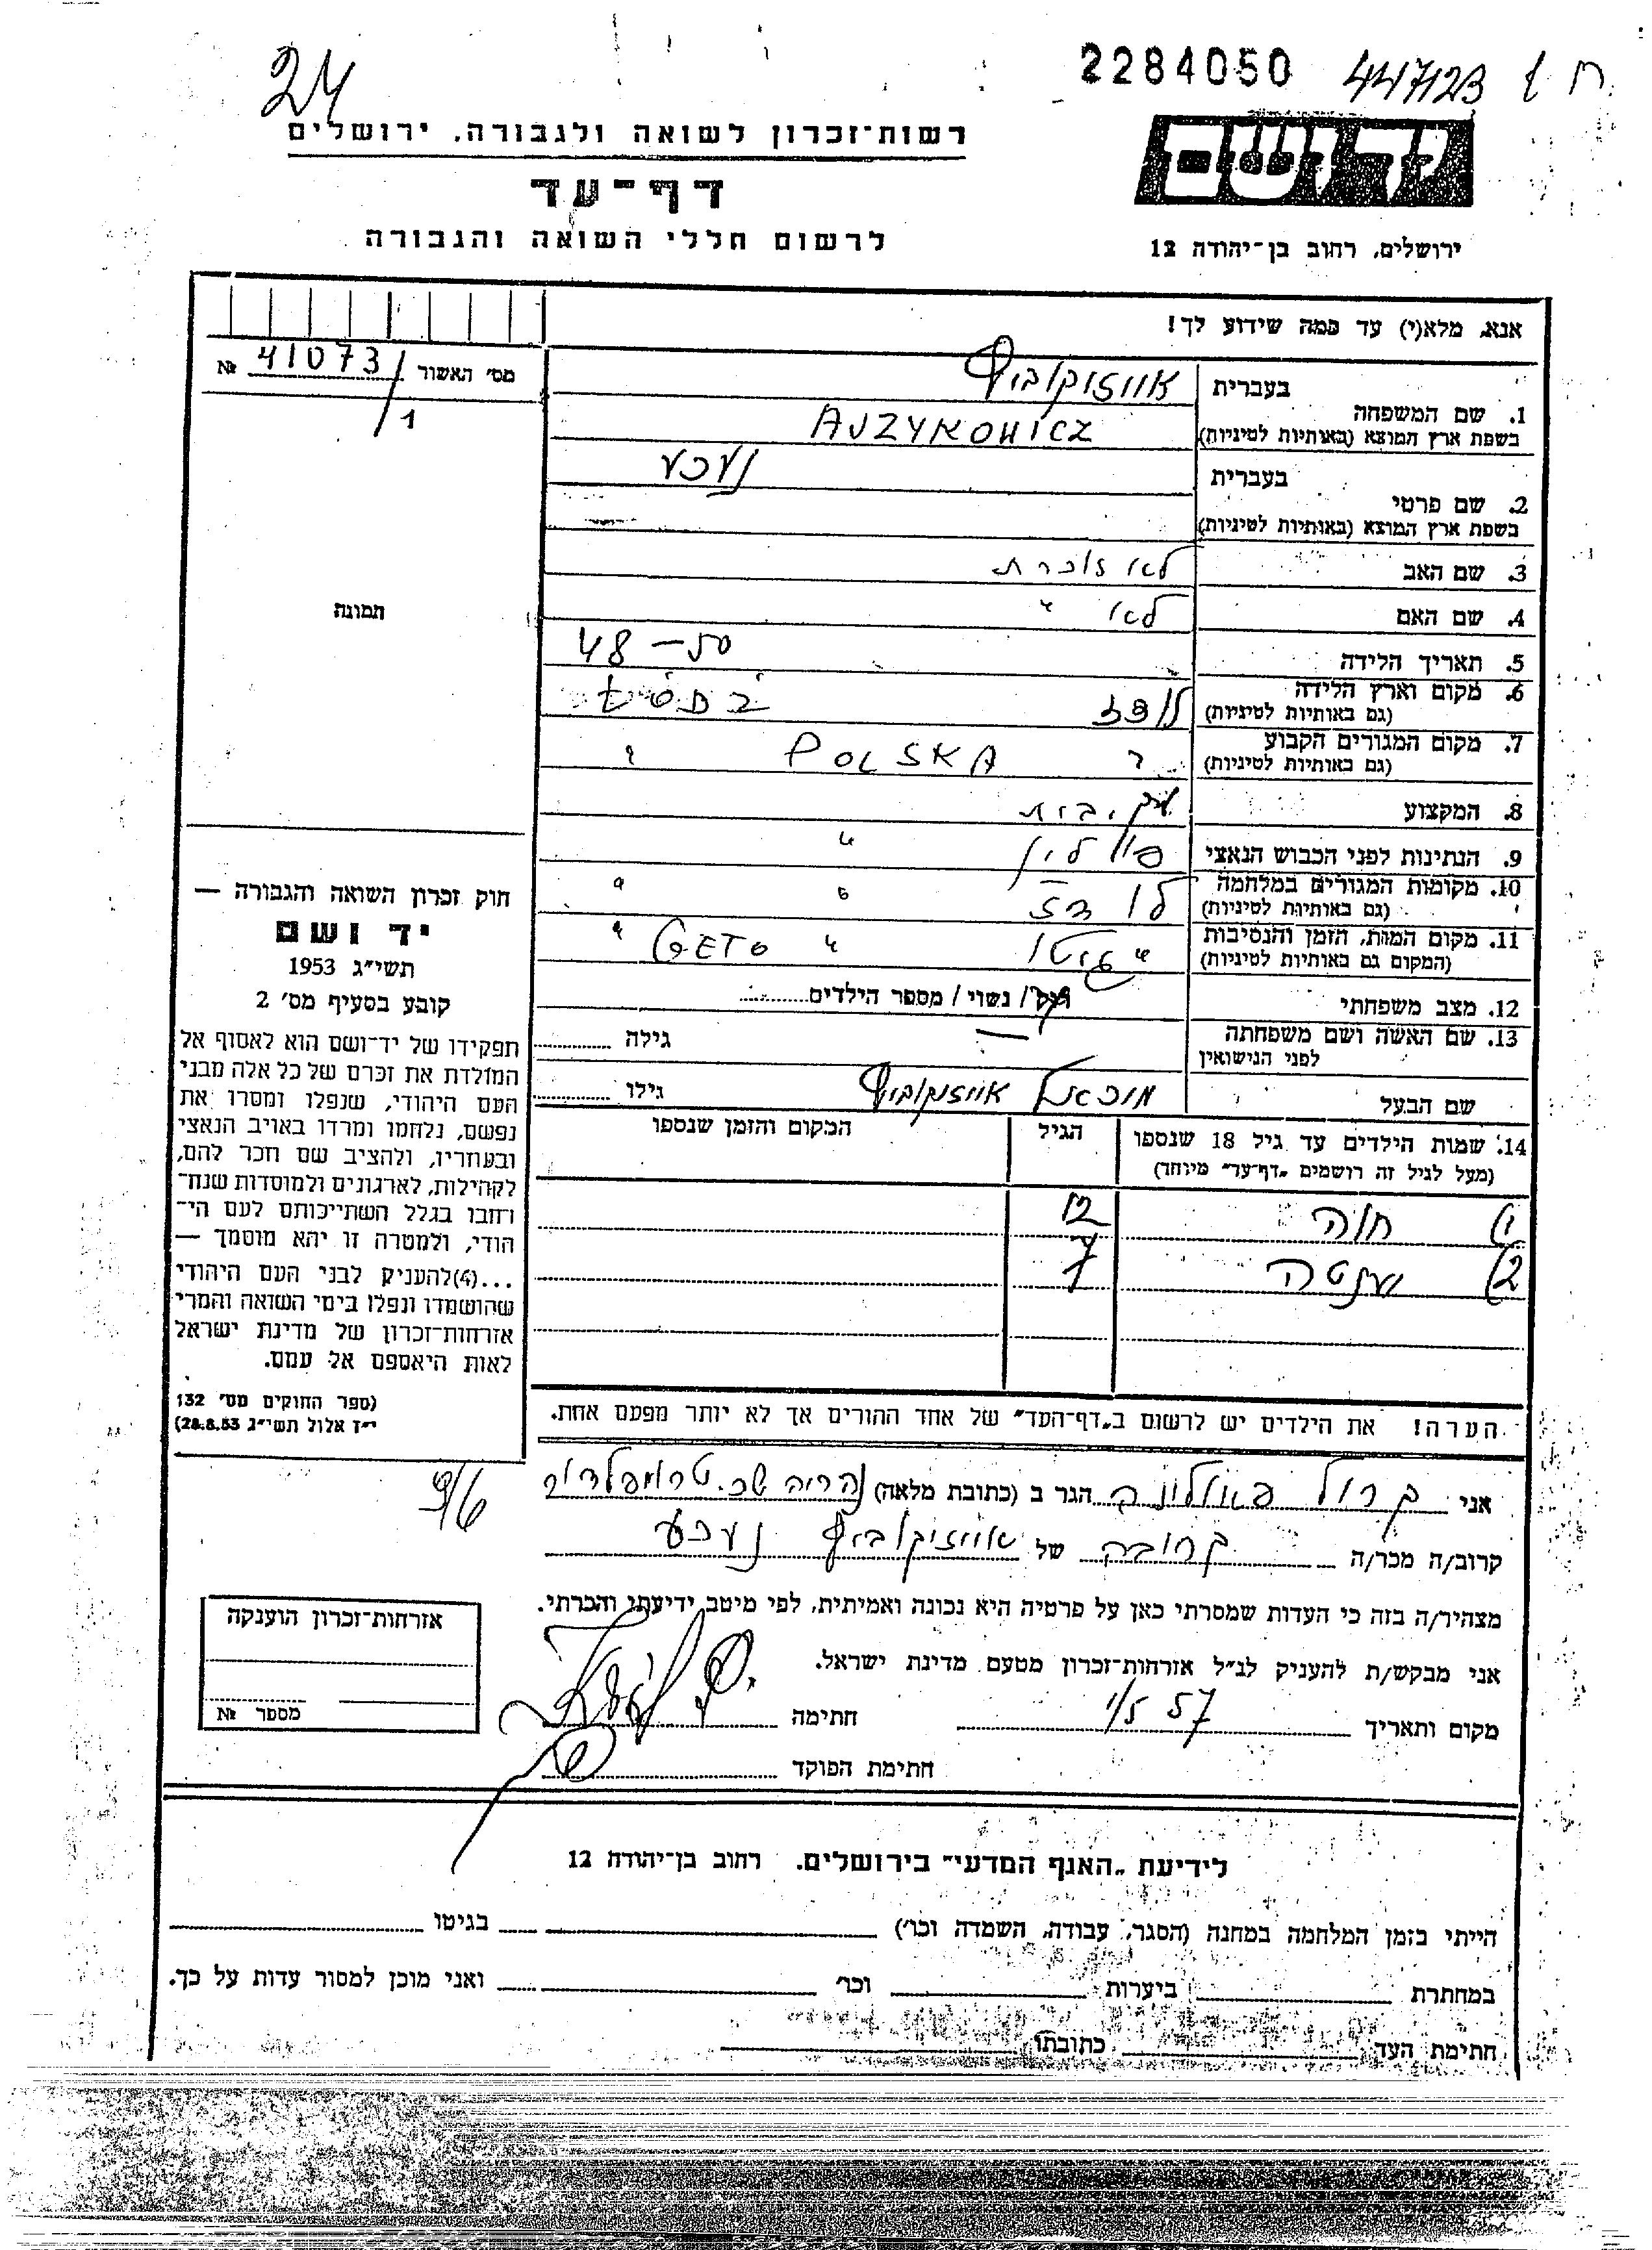 24
2284050 447123
רשות־זכרון לשואה ולגבורה, ירושלים
יד ושם
דף־עד
לרשום חללי השואה והגבורה
ירושלים, רחוב בן־יהודה 12
אנא, מלא(י) עד כמה שידוע לך!
מס׳ האשור 41073 №
1
בעברית אייזיקוביץ
1. שם המשפחה
בשפת ארץ המוצא (באותיות לטיניות) AJZYKOWICZ
בעברית
2. שם פרטי
בשפת ארץ המוצא (באותיות לטיניות)
3. שם האב לא זוכרת
4. שם האם לא "
תמונה
5. תאריך הלידה 48 – 50
6. מקום וארץ הלידה
(גם באותיות לטיניות) לודז
7. מקום המגורים הקבוע
(גם באותיות לטיניות) " POLSKA "
8. המקצוע עק. בית
9. הנתינות לפני הכבוש הנאצי פולין "
10. מקומות המגורים במלחמה
(גם באותיות לטיניות) לודז " "
11. מקום המות, הזמן והנסיבות
(המקום גם באותיות לטיניות) " גיטו " GETO "
12. מצב משפחתי רוק / נשוי / מספר הילדים
13. שם האשה ושם משפחתה
לפני הנישואין — גילה
שם הבעל מיכאל אייזיקוביץ גילו
14. שמות הילדים עד גיל 18 שנספו הגיל המקום והזמן שנספו
(מעל לגיל זה רושמים „דף־עד״ מיוחד)
1) חוה 12
2) יענטה 7
הערה! את הילדים יש לרשום ב„דף־העד״ של אחד ההורים אך לא יותר מפעם אחת.
חוק זכרון השואה והגבורה —
יד ושם
תשי״ג 1953
קובע בסעיף מס׳ 2
תפקידו של יד־ושם הוא לאסוף אל
המולדת את זכרם של כל אלה מבני
העם היהודי, שנפלו ומסרו את
נפשם, נלחמו ומרדו באויב הנאצי
ובעוזריו, ולהציב שם וזכר להם,
לקהילות, לארגונים ולמוסדות שנח־
רבו בגלל השתייכותם לעם הי־
הודי, ולמטרה זו יהא מוסמך —
...(4) להעניק לבני העם היהודי
שהושמדו ונפלו בימי השואה והמרי
אזרחות־זכרון של מדינת ישראל
לאות היאספם אל עמם.
(ספר החוקים מס׳ 132
י״ז אלול תשי״ג 28.8.53)
אני קרול פאולינה הגר ב (כתובת מלאה) נהריה שכ. טרומפלדור
קרוב/ה מכר/ה קרובה של אייזיקוביץ
מצהיר/ה בזה כי העדות שמסרתי כאן על פרטיה היא נכונה ואמיתית, לפי מיטב ידיעתי והכרתי.
אני מבקש/ת להעניק לנ״ל אזרחות־זכרון מטעם מדינת ישראל.
מקום ותאריך חתימה
חתימת הפוקד
אזרחות־זכרון הוענקה
מספר №
לידיעת „האגף המדעי״ בירושלים. רחוב בן־יהודה 12
הייתי בזמן המלחמה במחנה (הסגר, עבודה, השמדה וכו׳) בגיטו
במחתרת ביערות וכו׳ ואני מוכן למסור עדות על כך.
חתימת העד כתובתו